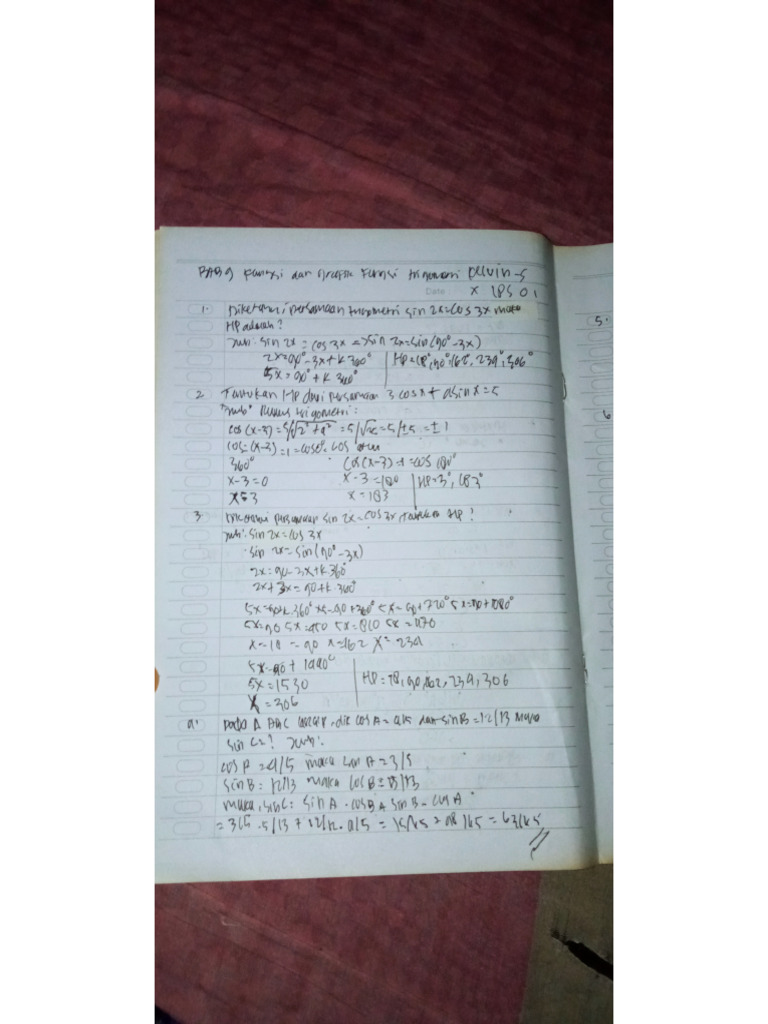 BAB 9 Fungsi dan Grafik Fungsi trigonometri Delvin-S
Date X IPS 01
1. Diketahui persamaan trigometri sin 2x = cos 3x maka
HP adalah?
Jwb: sin 2x = cos 3x = sin 2x = sin (90° - 3x)
2x = 90° - 3x + k 360°
5x = 90° + k 360°
HP = 18°, 90°, 162°, 239°, 306°
2. Tentukan HP dari persamaan 3 cos x + 4 sin x = 5
Jwb: Rumus trigometri:
cos (x-3) = 5/√ = 5/√25 = 5/±5 = ±1
cos (x-3) = 1 = cos
360° cos (x-3) = cos 180°
x - 3 = 0 x - 3 = 180 HP = 3°, 183°
x = 3 x = 183
3. Diketahui persamaan sin 2x = cos 3x tentukan HP!
Jwb: sin 2x = cos 3x
sin 2x = sin (90° - 3x)
2x = 90 - 3x + k 360°
2x + 3x = 90 + k 360°
5x = 90 + k 360° 5x = 90 + 360° 5x = 90 + 720° 5x = 90 + 1080°
5x = 90 5x = 450 5x = 810 5x = 1170
x = 18 = 90 x = 162 x = 239
5x = 90 + 1440°
5x = 1530 HP = 18, 90, 162, 239, 306
x = 306
4. pada Δ ABC lancip, dik cos A = 4/5 dan sin B = 12/13 maka
sin C = ? Jwb:
cos A = 4/5 maka sin A = 3/5
sin B = 12/13 maka cos B = 5/13
maka, sin C: sin A . cos B + sin B . cos A
= 3/5 . 5/13 + 12/13 . 4/5 = 15/65 + 48/65 = 63/65
5.
6